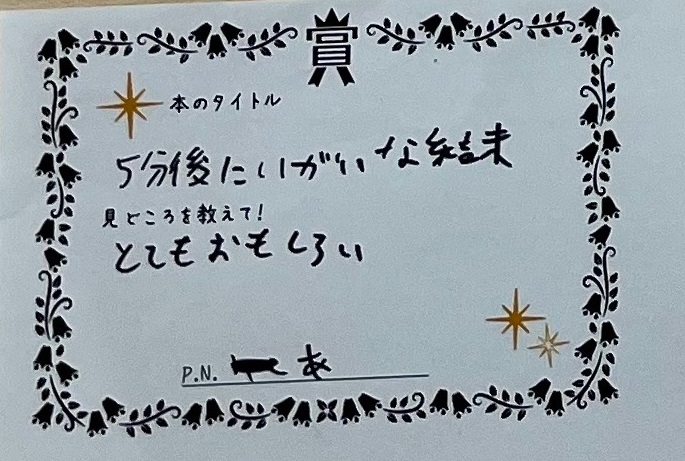 賞
本のタイトル
5分後にいがいな結末
見どころを教えて!
とてもおもしろい
P.N. あ